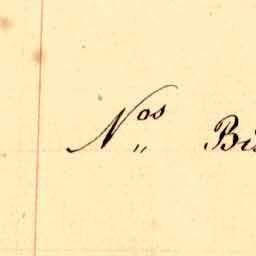 Nos Bis